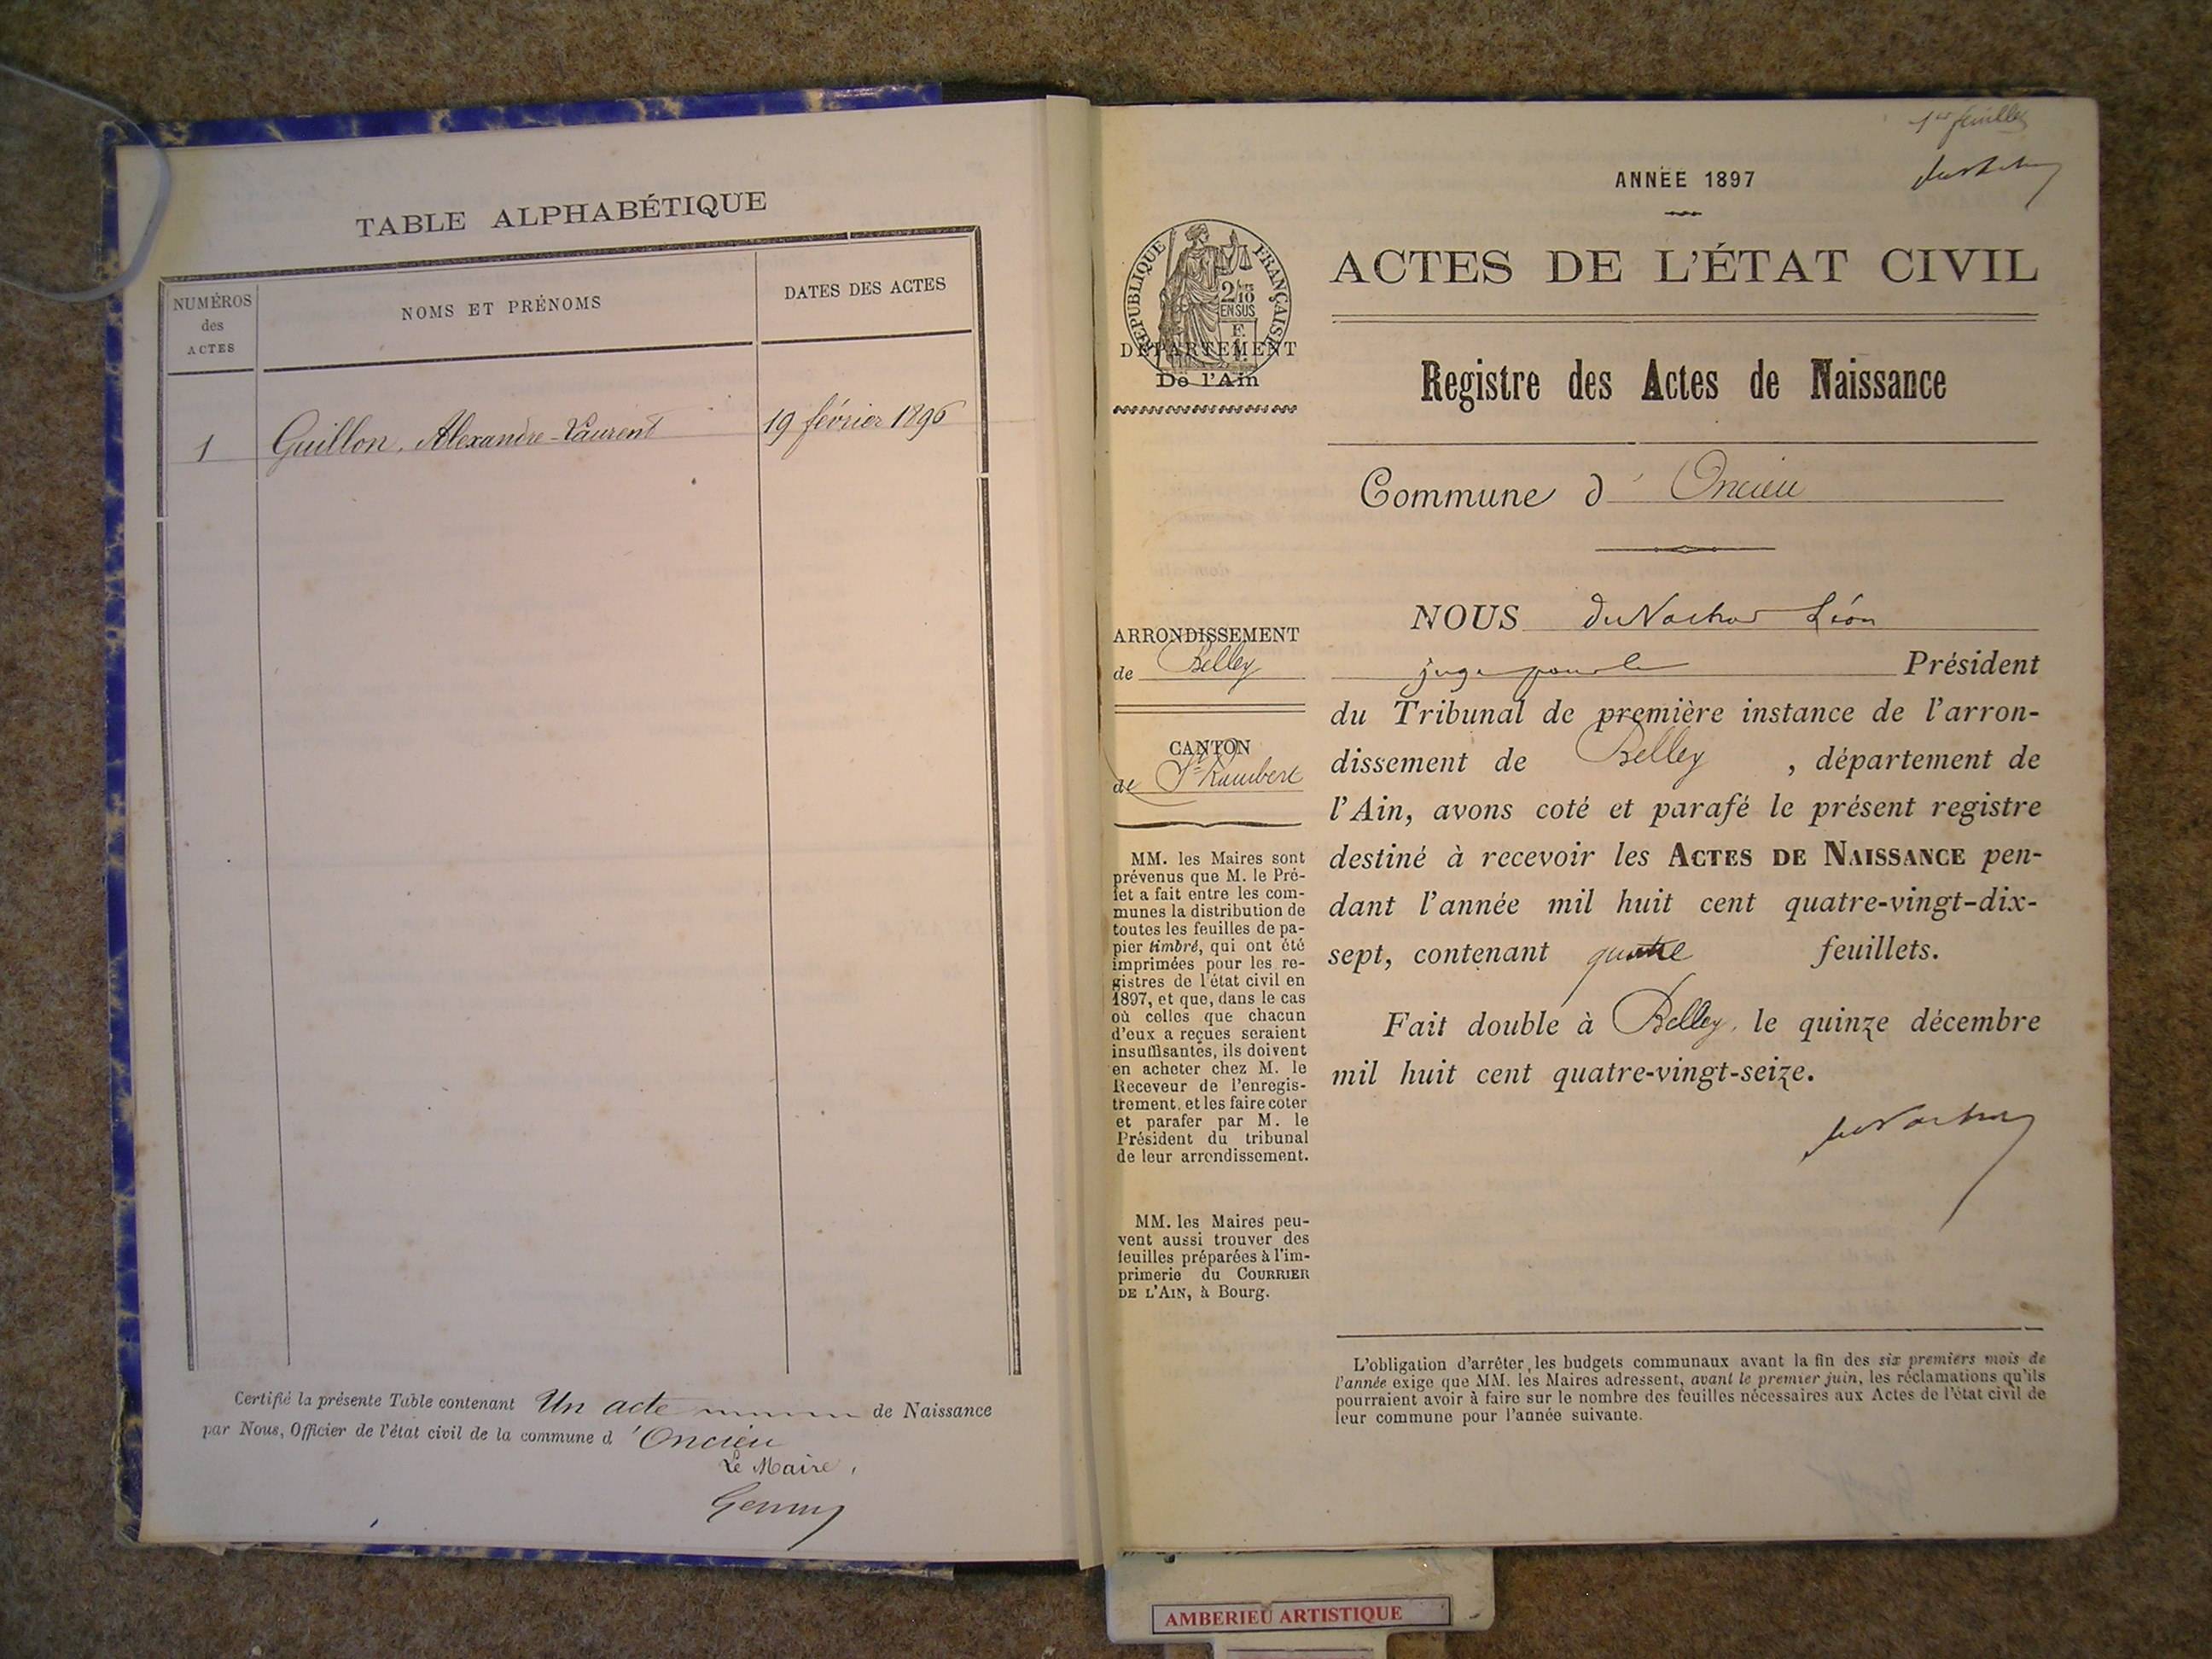 TABLE ALPHABÉTIQUE
NUMÉROS
des
ACTES
NOMS ET PRÉNOMS
DATES DES ACTES
1
Guillon, Alexandre-Laurent
19 février 1896
Certifié la présente Table contenant Un acte de Naissance
par Nous, Officier de l'état civil de la commune d'Oncieu
Le Maire,
1er feuillet
ANNÉE 1897
RÉPUBLIQUE FRANÇAISE
2/10
EN SUS
DÉPARTEMENT
De l'Ain
ACTES DE L'ÉTAT CIVIL
Registre des Actes de Naissance
Commune d'Oncieu
ARRONDISSEMENT
de Belley
CANTON
de St Rambert
MM. les Maires sont
prévenus que M. le Pré-
fet a fait entre les com-
munes la distribution de
toutes les feuilles de pa-
pier timbré, qui ont été
imprimées pour les re-
gistres de l'état civil en
1897, et que, dans le cas
où celles que chacun
d'eux a reçues seraient
insuffisantes, ils doivent
en acheter chez M. le
Receveur de l'enregis-
trement, et les faire coter
et parafer par M. le
Président du tribunal
de leur arrondissement.
MM. les Maires peu-
vent aussi trouver des
feuilles préparées à l'im-
primerie du COURRIER
DE L'AIN, à Bourg.
NOUS Léon
juge pour le Président
du Tribunal de première instance de l'arron-
dissement de Belley, département de
l'Ain, avons coté et parafé le présent registre
destiné à recevoir les ACTES DE NAISSANCE pen-
dant l'année mil huit cent quatre-vingt-dix-
sept, contenant quatre feuillets.
Fait double à Belley, le quinze décembre
mil huit cent quatre-vingt-seize.
L'obligation d'arrêter les budgets communaux avant la fin des six premiers mois de
l'année exige que MM. les Maires adressent, avant le premier juin, les réclamations qu'ils
pourraient avoir à faire sur le nombre des feuilles nécessaires aux Actes de l'état civil de
leur commune pour l'année suivante.
AMBERIEU ARTISTIQUE